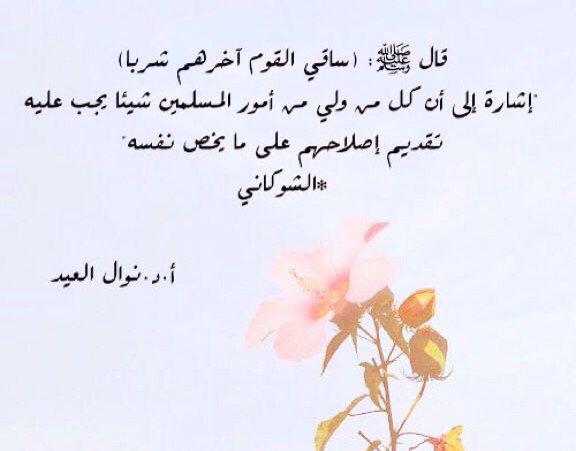 قال ﷺ: (ساقي القوم آخرهم شربا)
"إشارة إلى أن كل من ولي من أمور المسلمين شيئا يجب عليه
تقديم إصلاحهم على ما يخص نفسه"
*الشوكاني
أ.د.نوال العيد